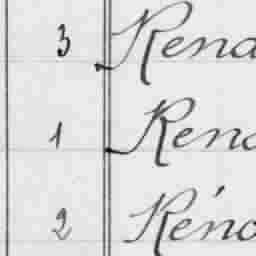 3 Rena
1 Rena
2 Réno